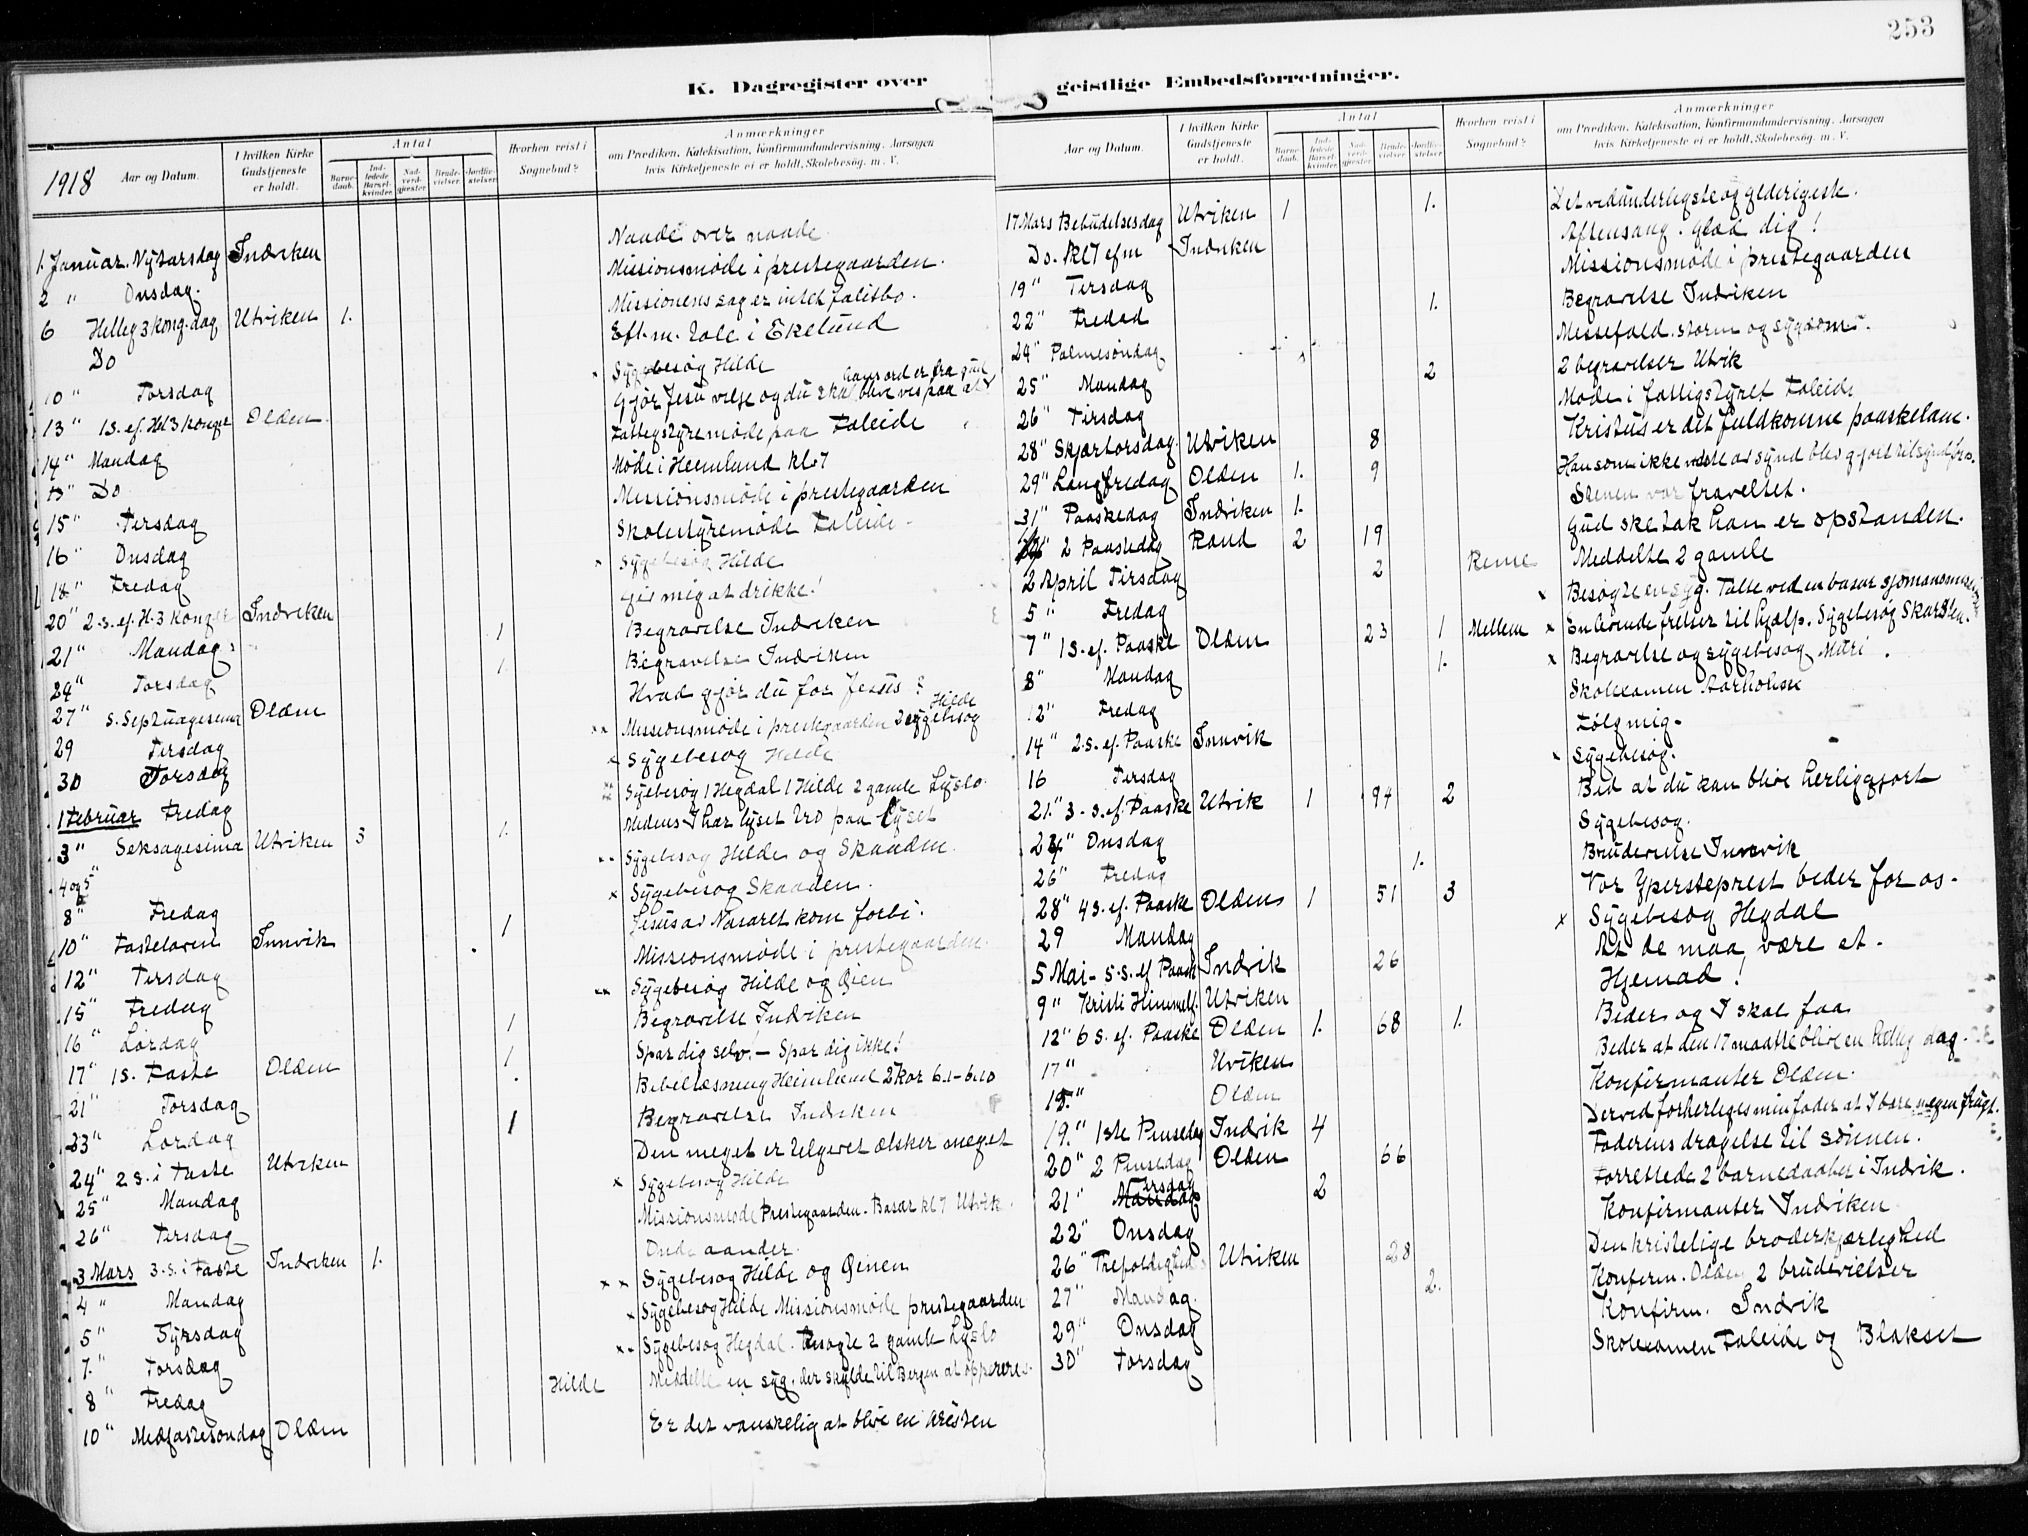 253
K. Dagregister over
geistlige Embedsforretninger.
1918
Aar og Datum.
I hvilken Kirke Gudstjeneste er holdt.
Antal
Barnedaab.
Indledede Barselkvinder.
Nadverdgjester
Brudevielser.
Jordfæstelser.
Hvorhen reist i Sognebud?
Anmærkninger
om Prædiken, Katekisation, Konfirmandundervisning, Aarsagen
hvis Kirketjeneste ei er holdt, Skolebesøg, m. V.
1. Januar. Nytarsdag Indviken Naade over naade
2 " Onsdag. Missionsmøde i prestegaarden.
6 Helleg 3 kong. dag Utviken 1. Missionens sag er intet falitbo.
Do Eft.m. tale i Ekelund
10 " Torsdag Sygebesøg Hilde
13 " 1 S. ef. Hl 3 konger Olden Gjør Jesu vilje og du skal blive vis paa at hans ord er fra gud
14 " Mandag Fattigstyremøde paa Faleide
" Do Møde i Heimlund kl 7
15 " Tirsdag Missionsmøde i prestegaarden
16 " Onsdag Skolestyremøde Faleide
18 " Fredag Sygebesøg Hilde
20 " 2. s. ef. H. 3 Konger Indviken Giv mig at drikke!
21 " Mandag 1 Begravelse Indviken
24 " Torsdag 1. Begravelse Indviken
27 " S. Septuagesima Olden Hvad gjør du for Jesus?
29 Tirsdag Missionsmøde i prestegaarden 2 sygebesøg Hilde
30 Torsdag Sygebesøg Hilde
1 Februar Fredag Sygebesøg 1 Hegdal 1 Hilde 2 gamle Lyslo
3 " Seksagesima Utviken 3 1. Medens I har lyset tro paa lyset
4 og 5 " Sygebesøg Hilde og Skaaden.
8 " Fredag Sygebesøg Skaaden.
10 " Fastelavn Innvik 1 Jesus av Nasaret kom forbi.
12 " Tirsdag Missionsmøde i prestegaarden.
15 " Fredag Sygebesøg Hilde og Øien
16 " Lørdag 1 Begravelse Indviken
17 " 1 S. Faste Olden 1 Spar dig selv. – Spar dig ikke!
21 " Torsdag Bibellæsning Heimlund 2 Kor 6.1–6.10
23 " Lørdag 1 Begravelse Indviken
24 " 2 S. i Faste Utviken Den meget er tilgivet elsker meget
25 " Mandag Sygebesøg Hilde
26 " Tirsdag Missionsmøde Prestegaarden. Basar kl 7 Utvik.
3 Mars 3. S. i Faste Indviken 1. Onde aander.
4 " Mandag Sygebesøg Hilde og Øinen
5 " Tyrsdag Sygebesøg Hilde Missionsmøde prestegaarden
7. " Torsdag Sygebesøg Hegdal. Besøgte 2 gamle Lyslo
8 " Fredag Hilde Meddelte en syg. der skulde til Bergen at oppereres.
10 " Midfastesøndag Olden Er det vanskelig at blive en kristen
Aar og Datum.
I hvilken Kirke Gudstjeneste er holdt.
Antal
Barnedaab.
Indledede Barselkvinder.
Nadverdgjester
Brudevielser.
Jordfæstelser.
Hvorhen reist i Sognebud?
Anmærkninger
om Prædiken, Katekisation, Konfirmandundervisning, Aarsagen
hvis Kirketjeneste ei er holdt, Skolebesøg, m. V.
17 Mars Bebudelsesdag Utviken 1 1. Det vedunderligste og glederigeste.
Do. kl 7 efm Indviken Aftensang. Glæd dig!
19 " Tirsdag Missionsmøde i prestegaarden
22 " Fredad 1. Begravelse Indviken
24 " Palmesøndag Messefald. storm og sygdom.
25 " Mandag 2 2 begravelser Utvik
26 " Tirsdag Møde i fattigstyret Faleide
28 " Skjærtorsdag Utviken 8 Kristus er det fuldkomne paaskelam.
29 " Langfredag Olden 1. 9 Han som ikke vidste av synd blev gjort til synd for os.
31 " Paaskedag Indviken 1. Stenen var fravæltet.
2 Paaskedag Rand 2 19 Gud ske tak han er opstanden.
2 April Tirsdag 2 Renne Meddelte 2 gamle
5 " Fredag Besøgte en syg. Talte ved en basar sjømansmission
7 " 1 S. ef. Paaske Olden 23 1 Mellem En levende frelser til hjælp. Sygebesøg Skarsten.
8 " Mandag 1. Begravelse og sygebesøg Muri.
12 " Fredag Skolexamen Aarholm
14 " 2. S. ef. Paaske Innvik Følg mig.
16 Tirsdag Sygebesøg.
21. " 3. S. ef. Paaske Utvik 1 194 2 Bed at du kan blive herliggjort
24 " Onsdag Sygebesøg.
26 " Fredag 1. Brudevielse Innvik
28 " 4 S. ef. Paaske Olden 1 51 3 Vor Ypersteprest beder for os.
29 Mandag Sygebesøg Hegdal
5 Mai – 5. S. ef Paaske Indvik 26 At de maa være et.
9 " Kristi Himmelf. Utviken Hjemad!
12 " 6 S. ef. Paaske Olden 1. 68 1. Beder og I skal faa
17 " Uviken Beder at den 17 maatte blive en hellig dag.
15. " Olden Konfirmanter Olden.
19. " 1ste Pinsedag Indvik 4 Derved forherliges min fader at I bære megen frugt.
20 " 2 Pinsedag Olden 66 Faderens dragelse til sønnen.
21 " Mandag Tirsdag 2 Forrettede 2 barnedaaber i Indvik.
22 " Onsdag Konfirmanter Indviken
26 " Trefoldighed Utviken 28 Den kristelige broderkjærlighed
27 " Mandag 2. Konfirm. Olden 2 brudevielser
29 " Onsdag Konfirm. Indvik
30 " Torsdag Skolexamen Faleide og Blakset